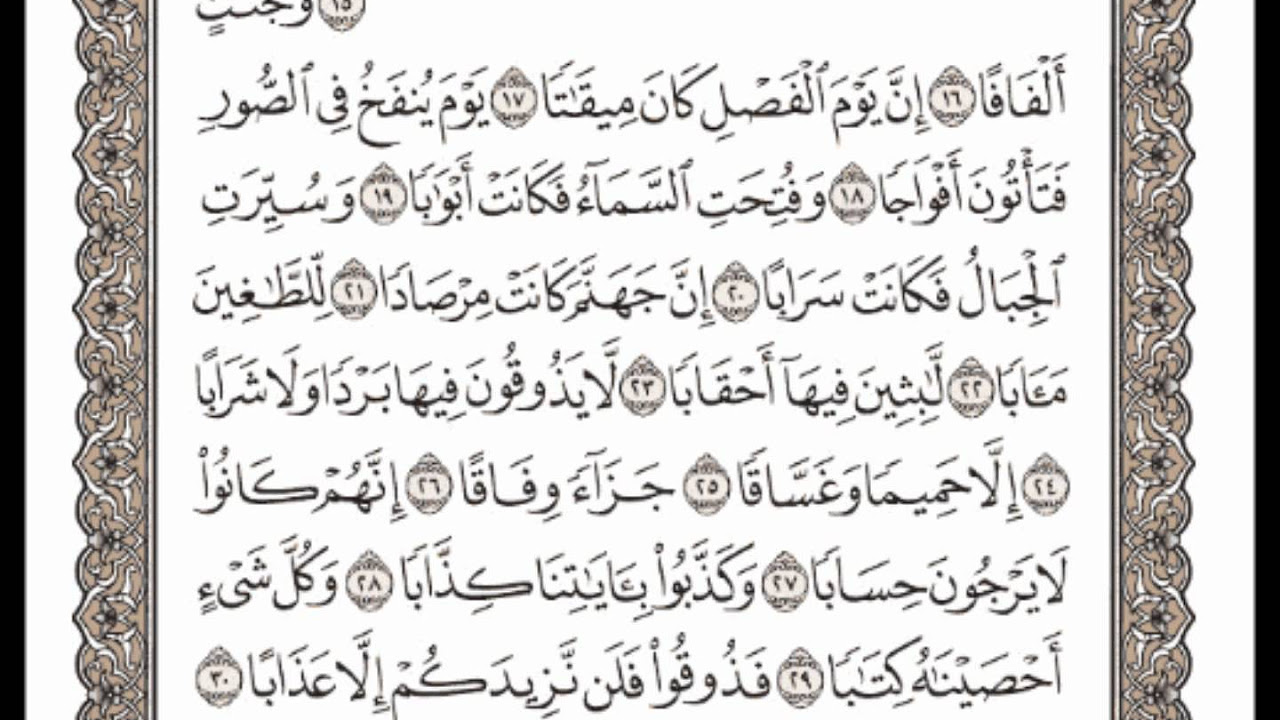 ١٥ وَجَنَّٰتٍ
أَلْفَافًا ١٦ إِنَّ يَوْمَ ٱلْفَصْلِ كَانَ مِيقَٰتًا ١٧ يَوْمَ يُنفَخُ فِى ٱلصُّورِ
فَتَأْتُونَ أَفْوَاجًا ١٨ وَفُتِحَتِ ٱلسَّمَآءُ فَكَانَتْ أَبْوَٰبًا ١٩ وَسُيِّرَتِ
ٱلْجِبَالُ فَكَانَتْ سَرَابًا ٢٠ إِنَّ جَهَنَّمَ كَانَتْ مِرْصَادًا ٢١ لِّلطَّٰغِينَ
مَـَٔابًا ٢٢ لَّٰبِثِينَ فِيهَآ أَحْقَابًا ٢٣ لَّا يَذُوقُونَ فِيهَا بَرْدًا وَلَا شَرَابًا
٢٤ إِلَّا حَمِيمًا وَغَسَّاقًا ٢٥ جَزَآءً وِفَاقًا ٢٦ إِنَّهُمْ كَانُوا۟
لَا يَرْجُونَ حِسَابًا ٢٧ وَكَذَّبُوا۟ بِـَٔايَٰتِنَا كِذَّابًا ٢٨ وَكُلَّ شَىْءٍ
أَحْصَيْنَٰهُ كِتَٰبًا ٢٩ فَذُوقُوا۟ فَلَن نَّزِيدَكُمْ إِلَّا عَذَابًا ٣٠